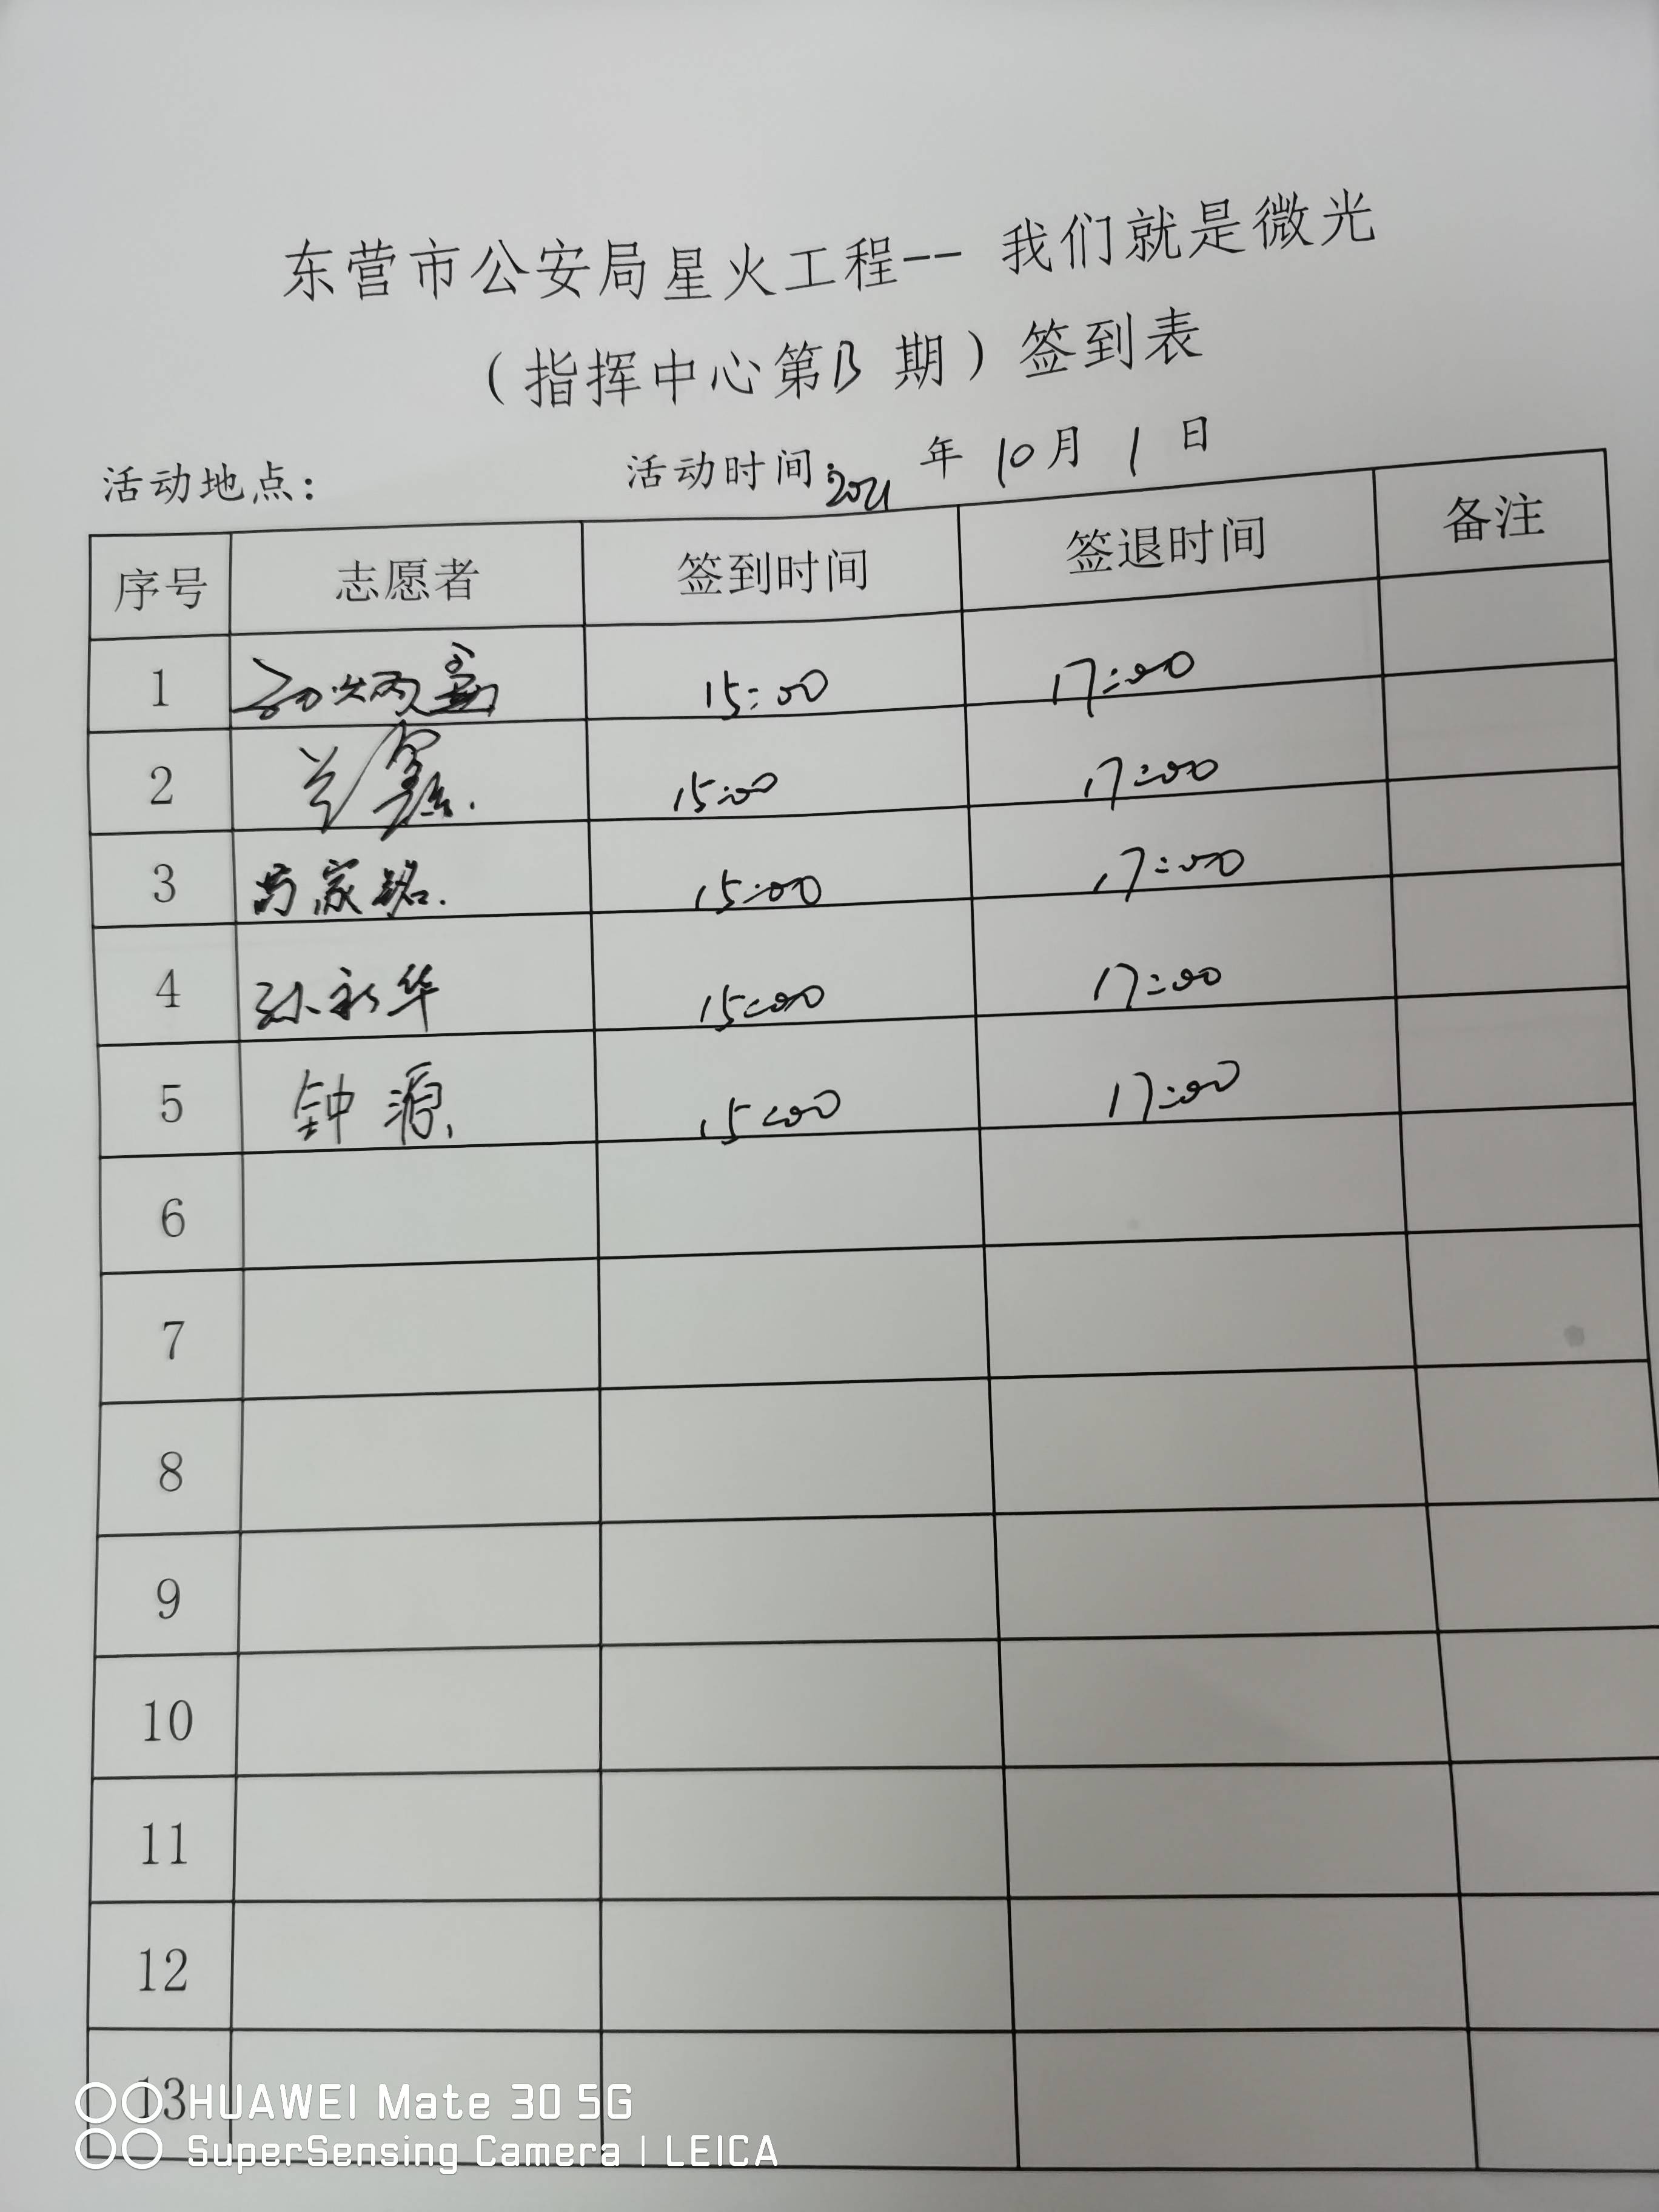 东营市公安局星火工程-- 我们就是微光
（指挥中心第13期）签到表
活动地点： 活动时间：2021年10月1日
序号 志愿者 签到时间 签退时间 备注
1 15:00 17:00
2 15:00 17:00
3 家铭 15:00 17:00
4 孙永华 15:00 17:00
5 钟源 15:00 17:00
6
7
8
9
10
11
12
13
HUAWEI Mate 30 5G
SuperSensing Camera | LEICA